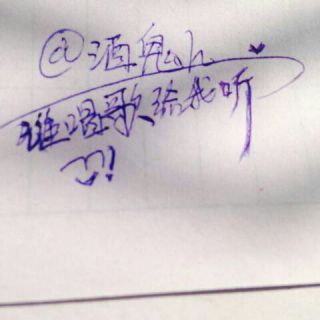 @酒鬼h
谁唱歌给我听
!